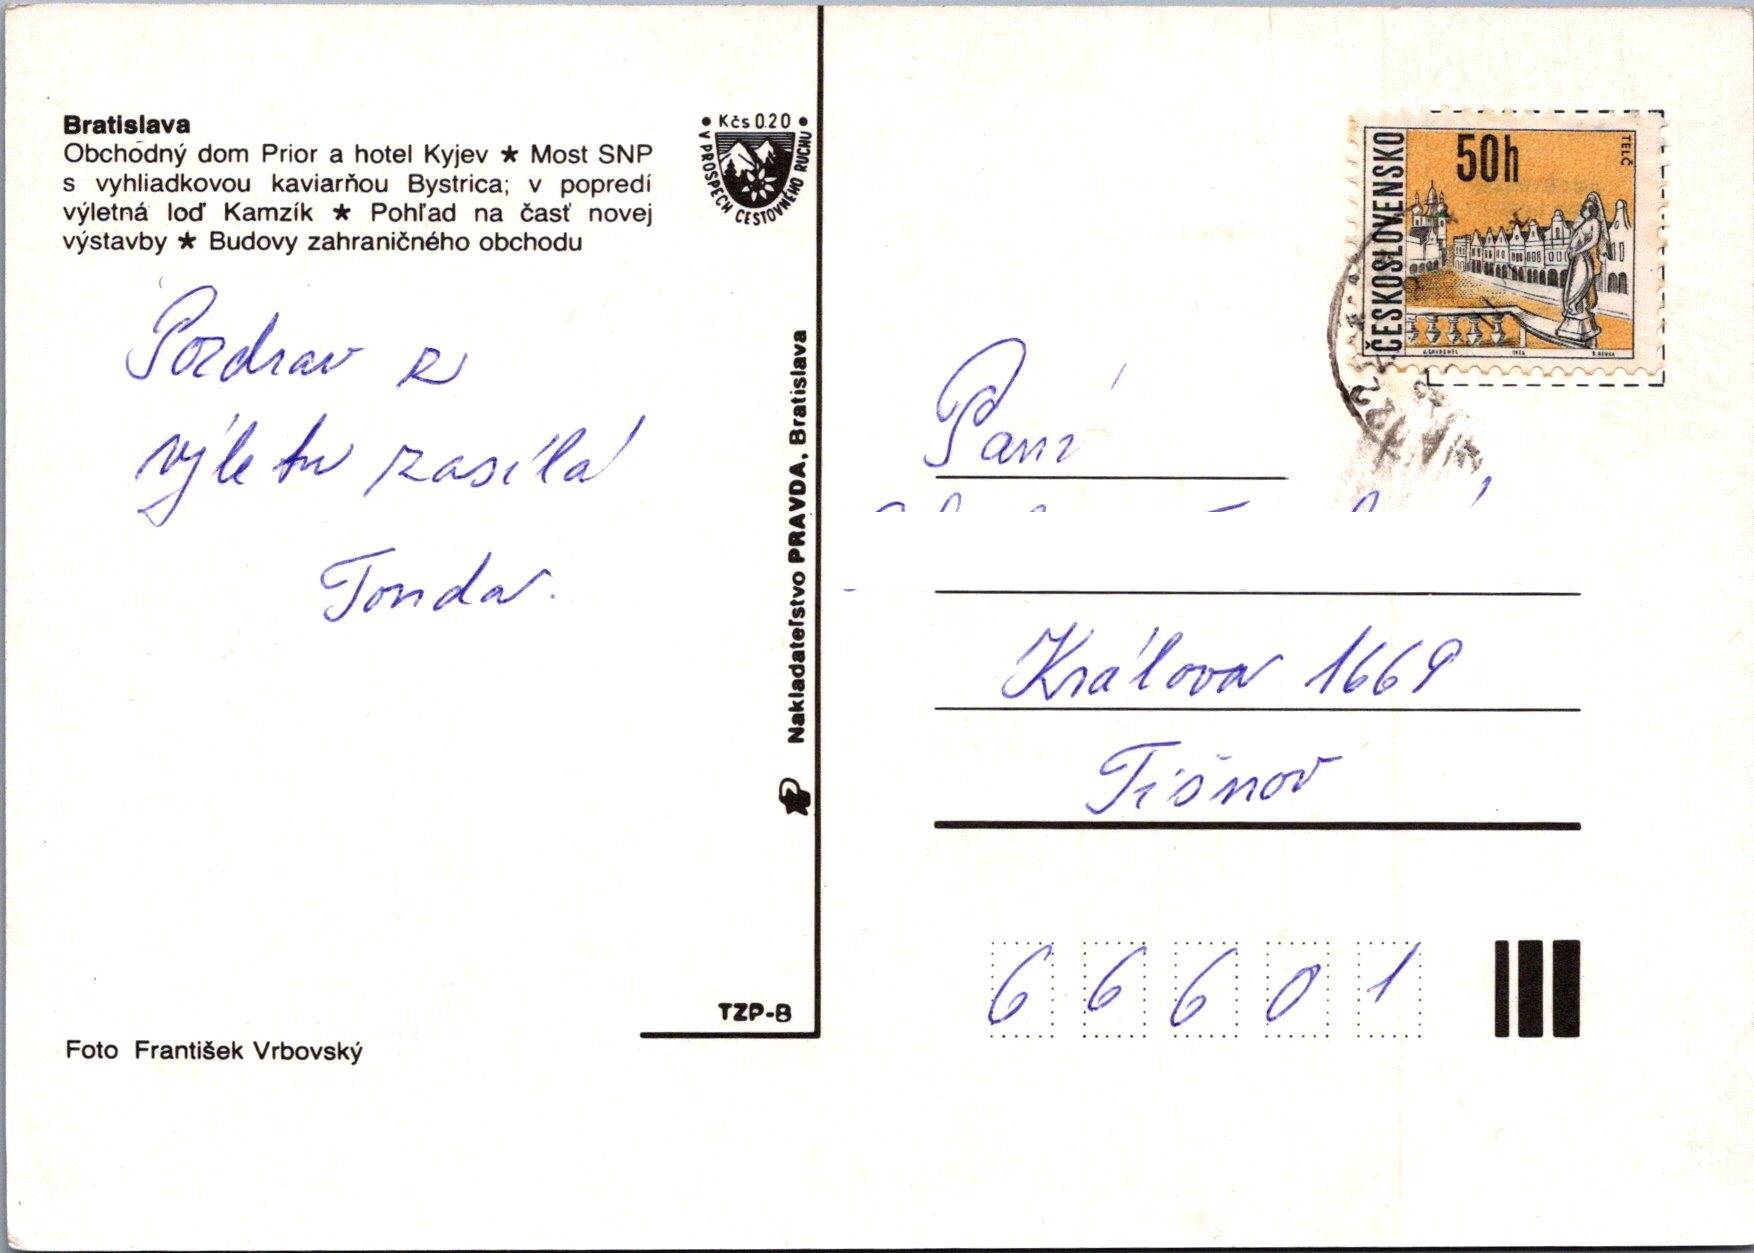 Bratislava
Obchodný dom Prior a hotel Kyjev ★ Most SNP
s vyhliadkovou kaviarňou Bystrica; v popredí
výletná loď Kamzík ★ Pohľad na časť novej
výstavby ★ Budovy zahraničného obchodu
• Kčs 0.20 •
V PROSPECH CESTOVNÉHO RUCHU
Pozdrav z
výletu zasílá
Tonda.
Nakladateľstvo PRAVDA, Bratislava
TZP-8
Foto František Vrbovský
ČESKOSLOVENSKO
50h
TELČ
Paní
Králova 1669
Tišnov
66601